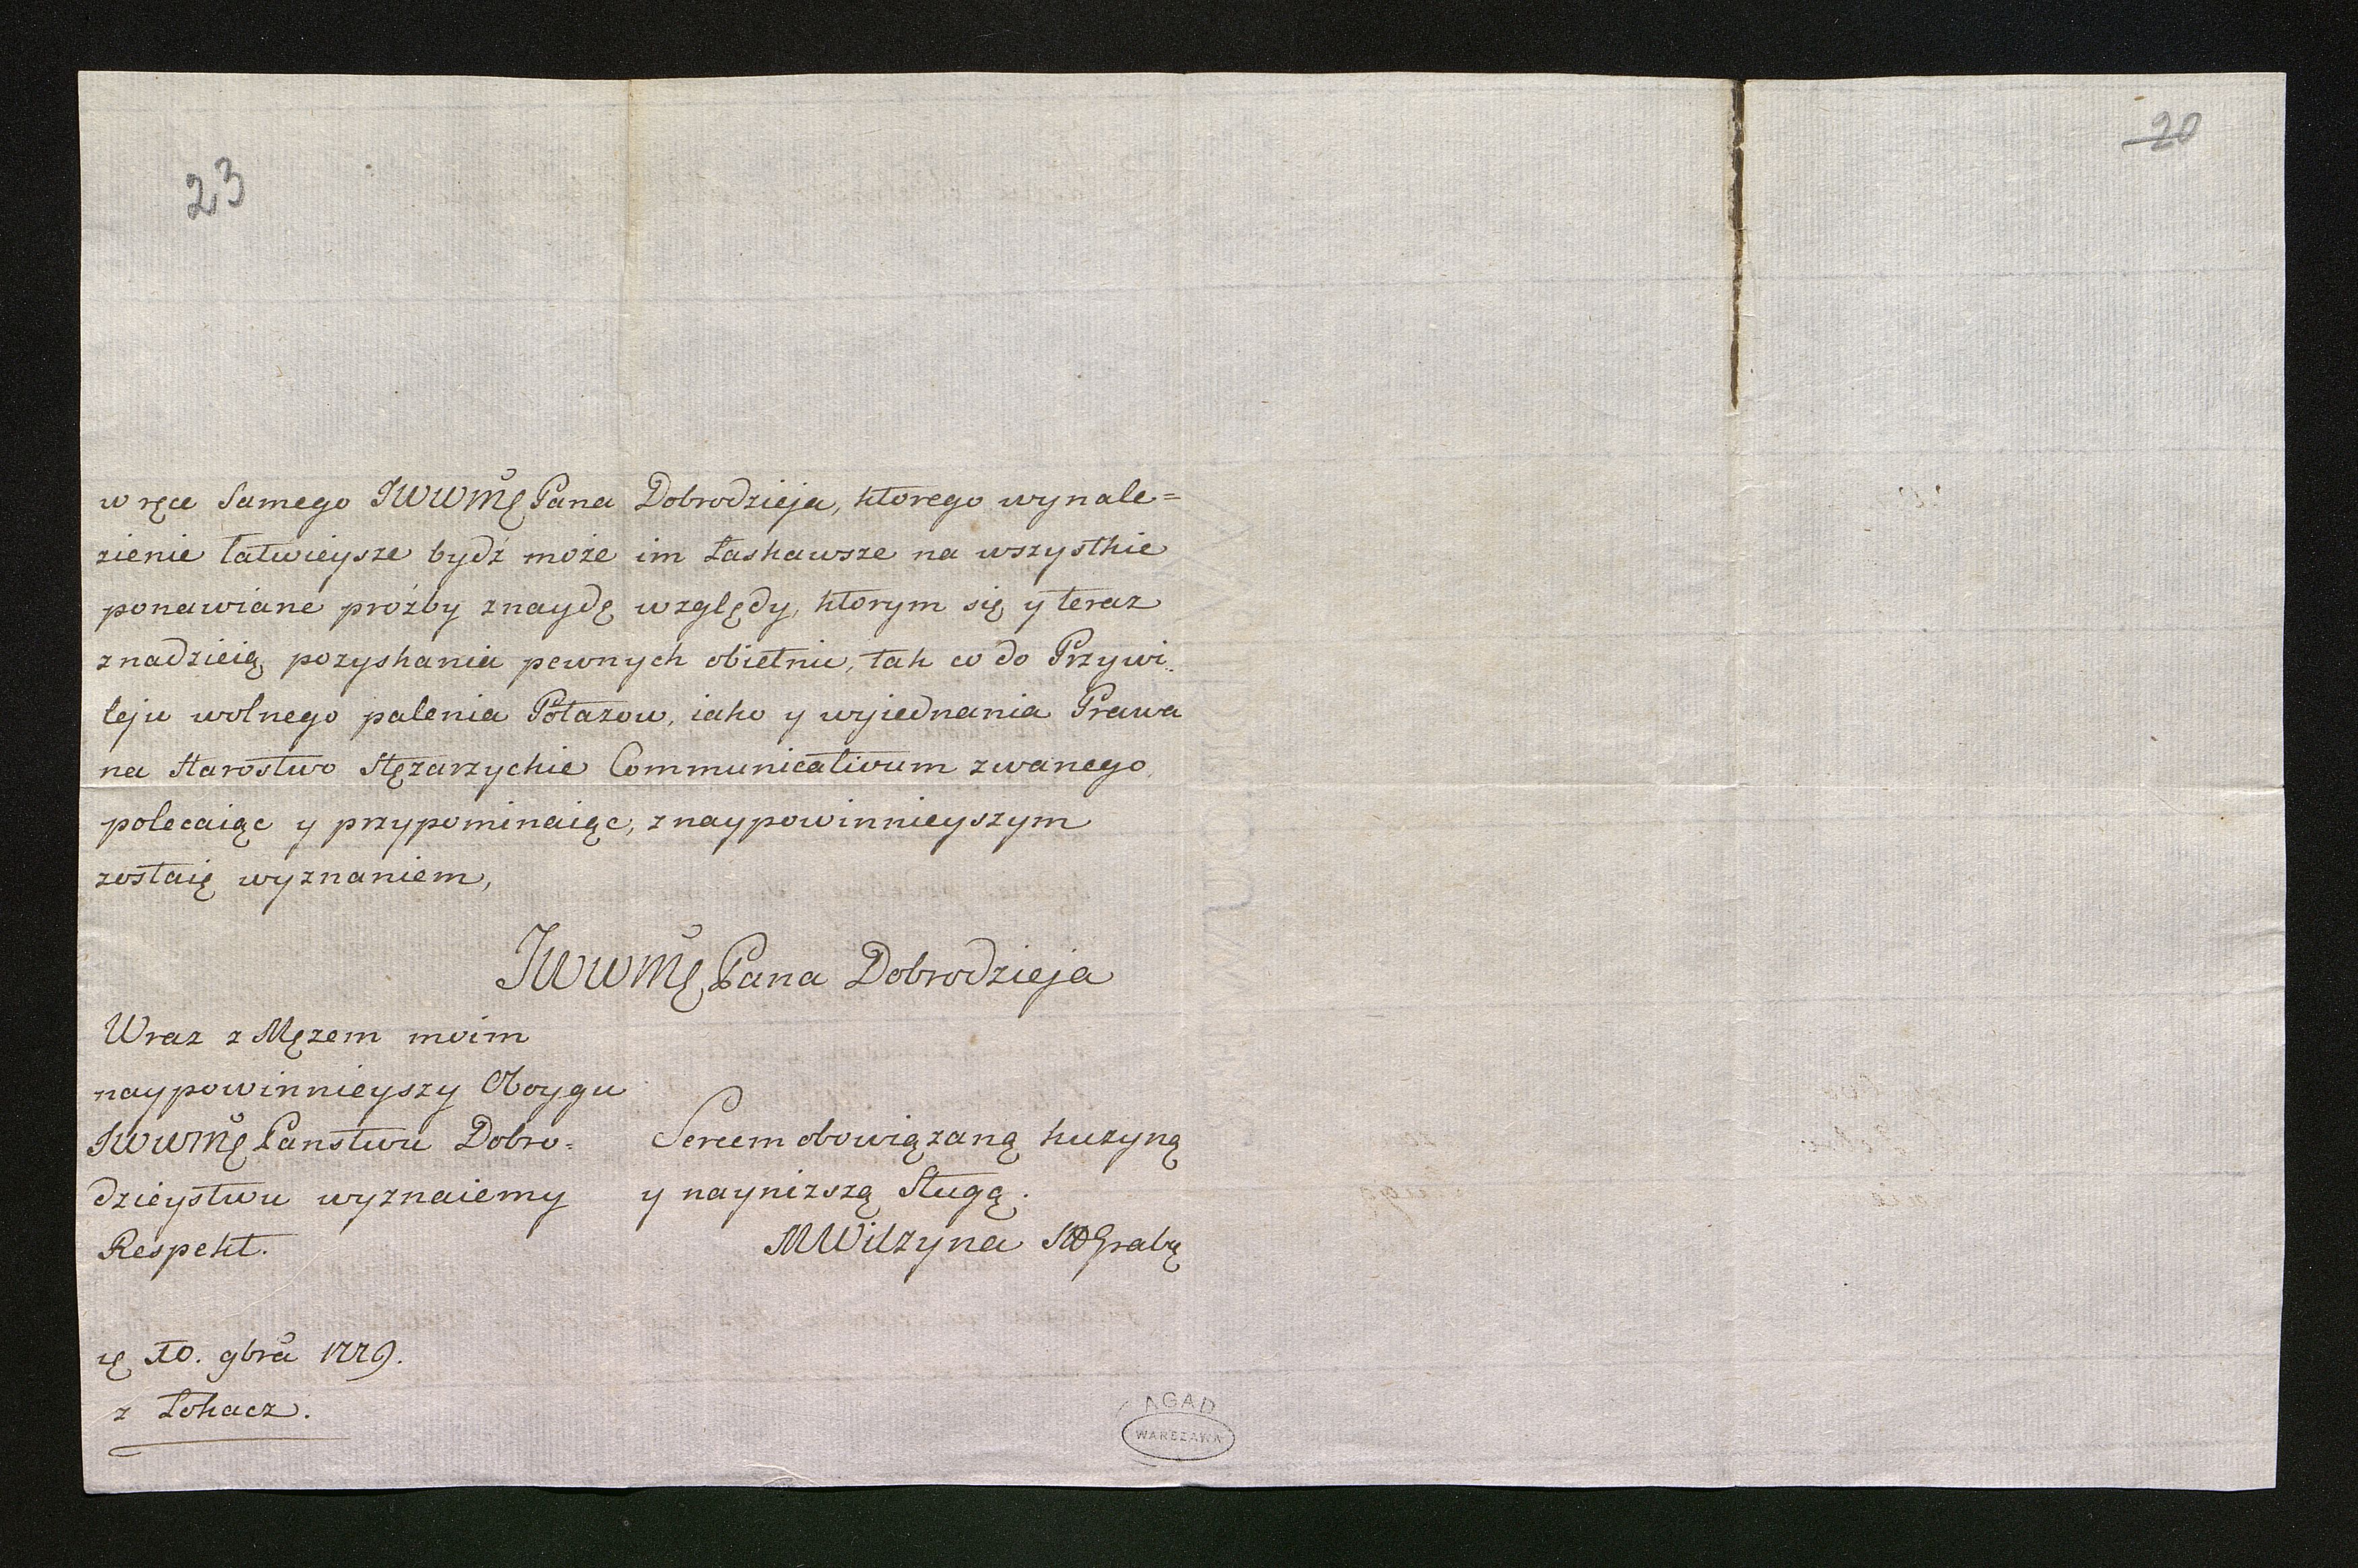 23
20
w ręce Samego JWWMę Pana Dobrodzieja, ktorego wynale=
zienie łatwieysze bydź może im łaskawsze na wszystkie
ponawiane proźby znaydę względy, ktorym się y teraz
znadzieią pozyskania pewnych obietnic, tak co do Przywi=
leju wolnego palenia Potazow, iako y wyjednania Prawa
na Starostwo Stęzarzyckie Communicativum zwanego,
polecaiąc y przypominaiąc, znaypowinnieyszym
zostaię wyznaniem,
JWWMę Pana Dobrodzieja
Wraz z Męzem moim
naypowinnieyszy Oboygu
JWWMę Panstwu Dobro=
dzieystwu wyznaiemy
Respekt.
Sercem obowiązaną kuzyną
y naynizszą Sługą.
MWilzyna
10. 9bra 1779.
z Łokacz.
AGAD
WARSZAWA